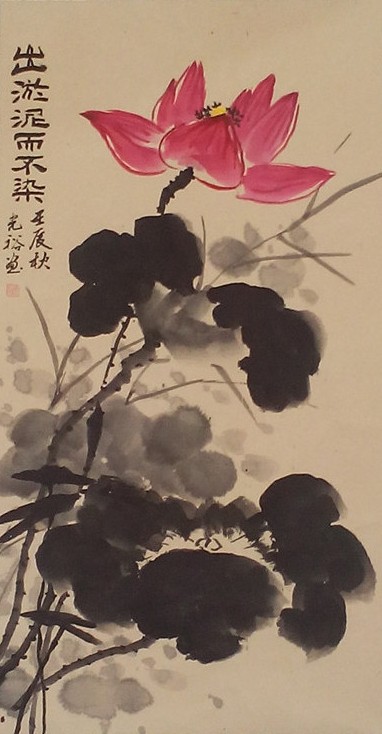 出淤泥而不染
壬辰秋
光裕画